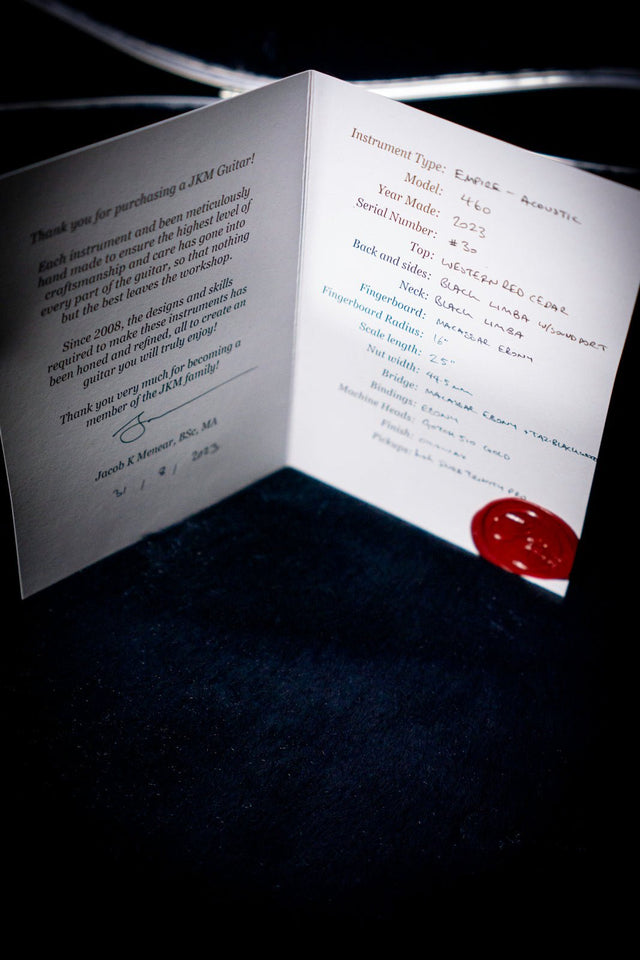 Thank you for purchasing a JKM Guitar!
Each instrument and been meticulously
hand made to ensure the highest level of
craftsmanship and care has gone into
every part of the guitar, so that nothing
but the best leaves the workshop.
Since 2008, the designs and skills
required to make these instruments has
been honed and refined, all to create an
guitar you will truly enjoy!
Thank you very much for becoming a
member of the JKM family!
Jacob K Menear, BSc, MA
31 / 8 / 2023
Instrument Type: EMPIRE - ACOUSTIC
Model: 460
Year Made: 2023
Serial Number: #30
Top: WESTERN RED CEDAR
Back and sides: BLACK LIMBA W/SOUNDPORT
Neck: BLACK LIMBA
Fingerboard: MACASSAR EBONY
Fingerboard Radius: 16"
Scale length: 25"
Nut width: 44.5mm
Bridge: MACASSAR EBONY
Bindings: EBONY
Machine Heads: GOTOH 510 GOLD
Finish:
Pickups: TRINITY PRO